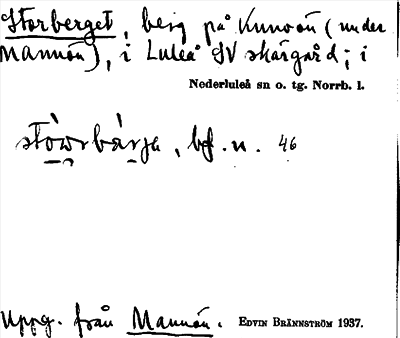 Storberget, berg på Kunoön (under
Mannön), i Luleå SV skärgård; i
Nederluleå sn o. tg. Norrb. l.
stòwrbàrja, bf. n. 46
Uppg. från Mannön. EDVIN BRÄNNSTRÖM 1937.